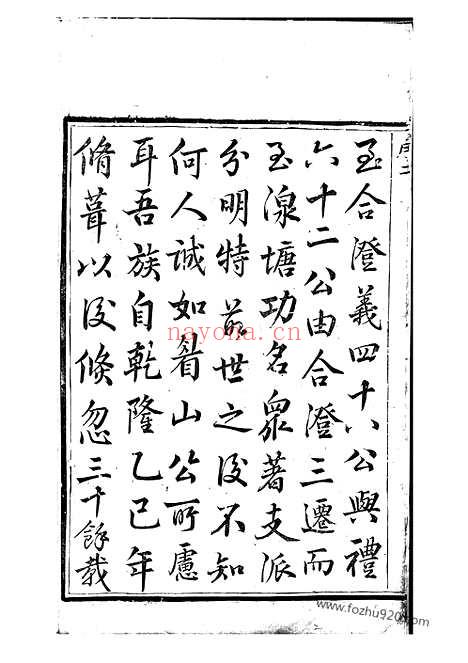 至合澄義四十八公與禮
六十二公由合澄三遷而
至湶塘功名衆著支派
分明特前世之後不知
何人誠如眉山公所慮
耳吾族自乾隆乙巳年
脩葺以後倏忽三十餘載
nayona.cn
www.fozhu920.com